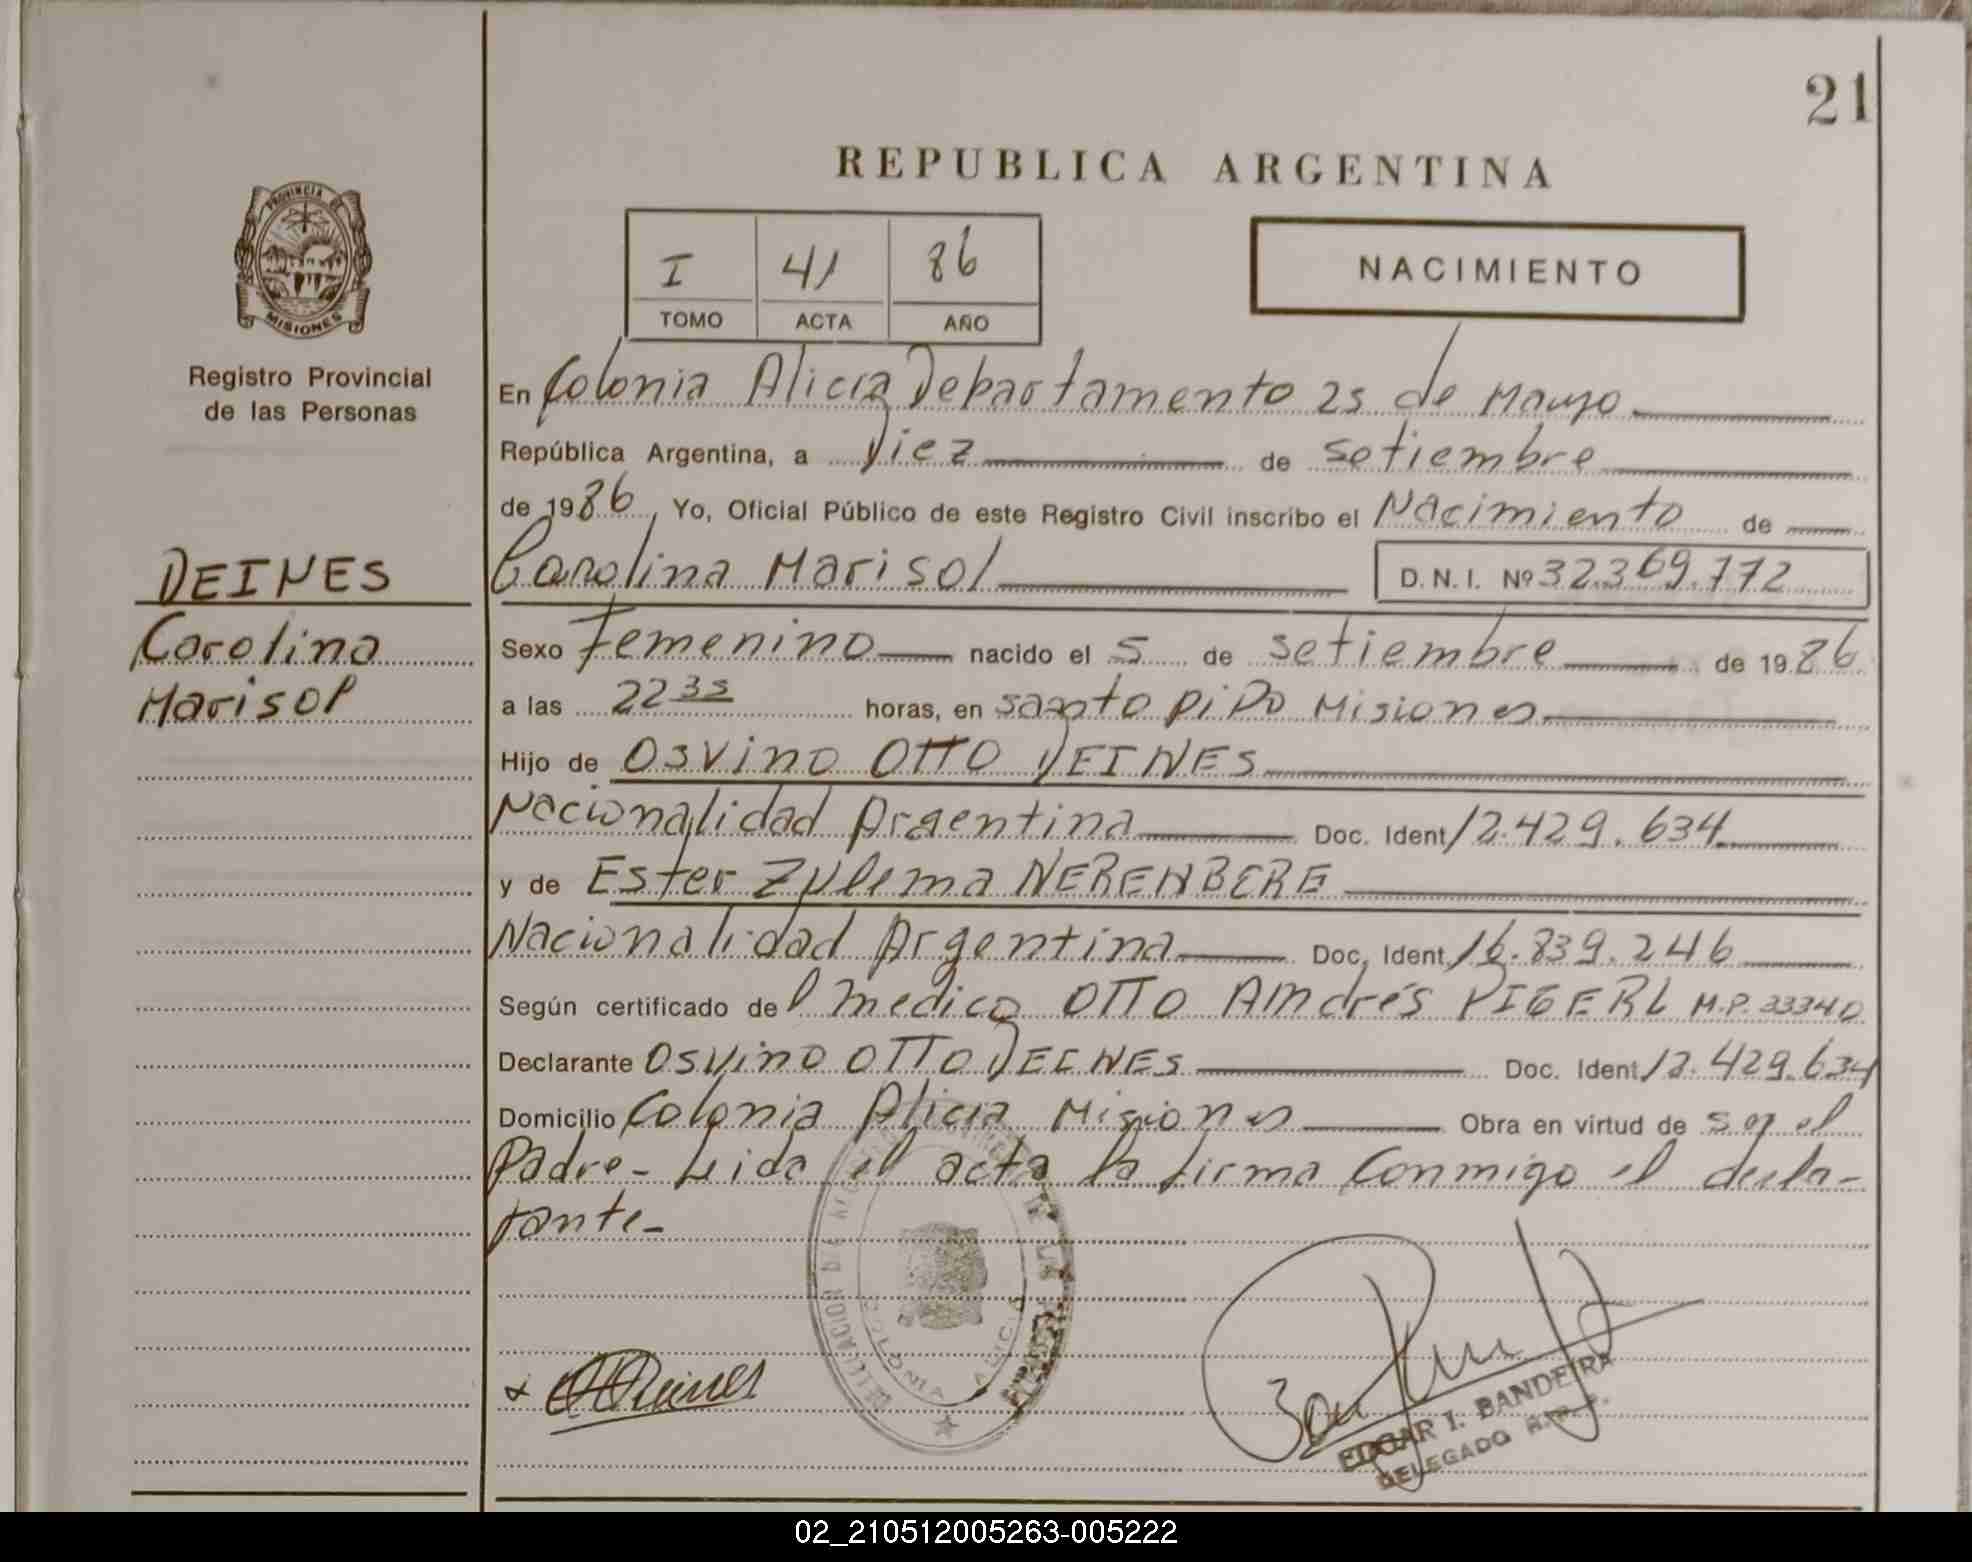 21
REPUBLICA ARGENTINA
PROVINCIA DE
MISIONES
Registro Provincial
de las Personas
I 41 86
TOMO ACTA AÑO
NACIMIENTO
En Colonia Alicia Departamento 25 de Mayo
República Argentina, a Diez de setiembre
de 1986, Yo, Oficial Público de este Registro Civil inscribo el Nacimiento de
DEINES
Carolina Marisol D.N.I. Nº 32.369.772
Carolina
Marisol
Sexo Femenino nacido el 5 de setiembre de 1986
a las 22 35 horas, en santo PiPo Misiones
Hijo de Osvino OTTO DEINES
Nacionalidad Argentina Doc. Ident 12.429.634
y de Ester Zulema NERENBERG
Nacionalidad Argentina Doc. Ident. 16.839.246
Según certificado del medico OTTO Andrés PIGERL M.P. 33340
Declarante Osvino OTTO DEINES Doc. Ident. 12.429.634
Domicilio Colonia Alicia Misiones Obra en virtud de ser el
Padre- Leida el acta la firma conmigo el decla-
rante-
COLONIA ALICIA
EDGAR I. BANDEIRA
DELEGADO R.P.P.
02_210512005263-005222